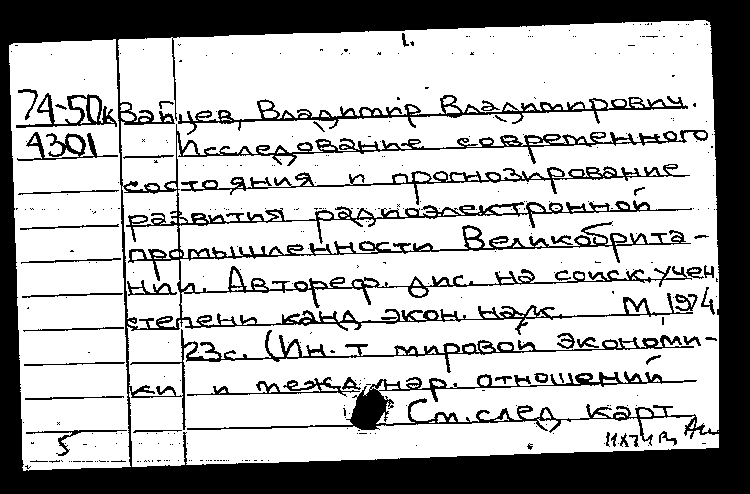 1.
74-50к Зайцев, Владимир Владимирович.
4301 Исследование современного
состояния и прогнозирование
развития радиоэлектронной
промышленности Великобрита-
нии. Автореф. дис. на соиск. учен.
степени канд. экон. наук. М., 1974.
23с. (Ин-т мировой экономи-
ки и междунар. отношений
См. след. карт.
5